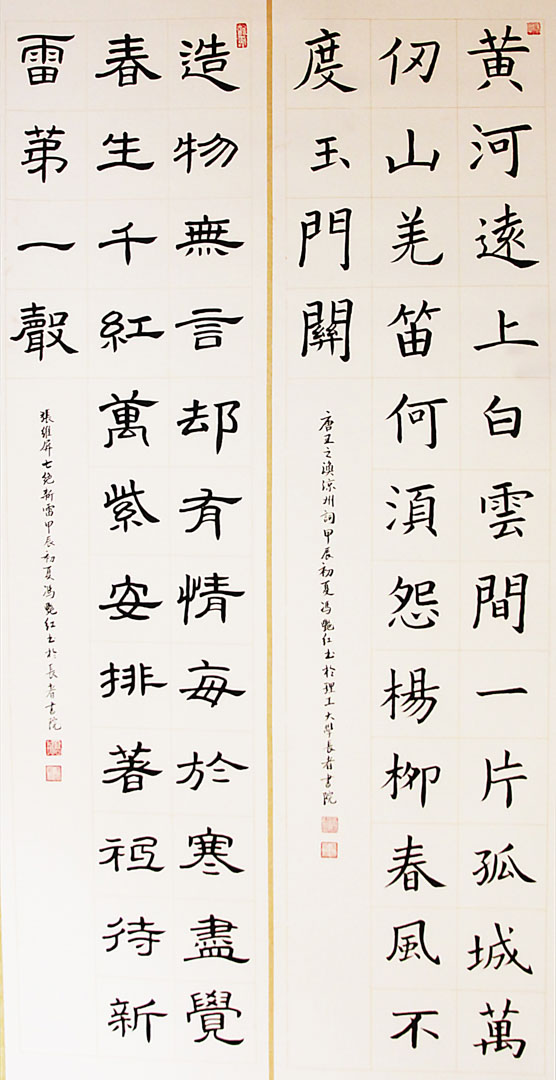 黄河遠上白雲間一片孤城萬
仞山羌笛何湏怨楊柳春風不
度玉門關
唐王之渙涼州詞甲辰初夏馮艷红书於理工大学長者書院
造物無言却有情每於寒盡覺
春生千紅萬紫安排著祗待新
雷苐一聲
張維屏七絶新雷甲辰初夏馮艷红书於長者書院